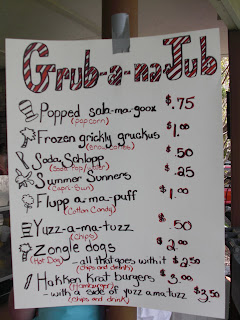 Grub-a-na Jub
Popped sah-ma-goox $.75
(popcorn)
Frozen grickly gruckus $1.00
(snowcones)
Soda Schlopp .50
(Soda Pop/Bar)
Summer Sunners $.25
(Capri-Sun)
Flupp a ma-puff $1.00
(Cotton Candy)
Yuzz-a-ma-tuzz .50
(Chips)
Zongle dogs $2.00
(Hot Dog) - all that goes with it $2.50
(chips and drink)
Hakken Krast burgers $3.00
(Hamburger)
- with a side of yuzz a ma tuzz $3.50
(chips and drink)